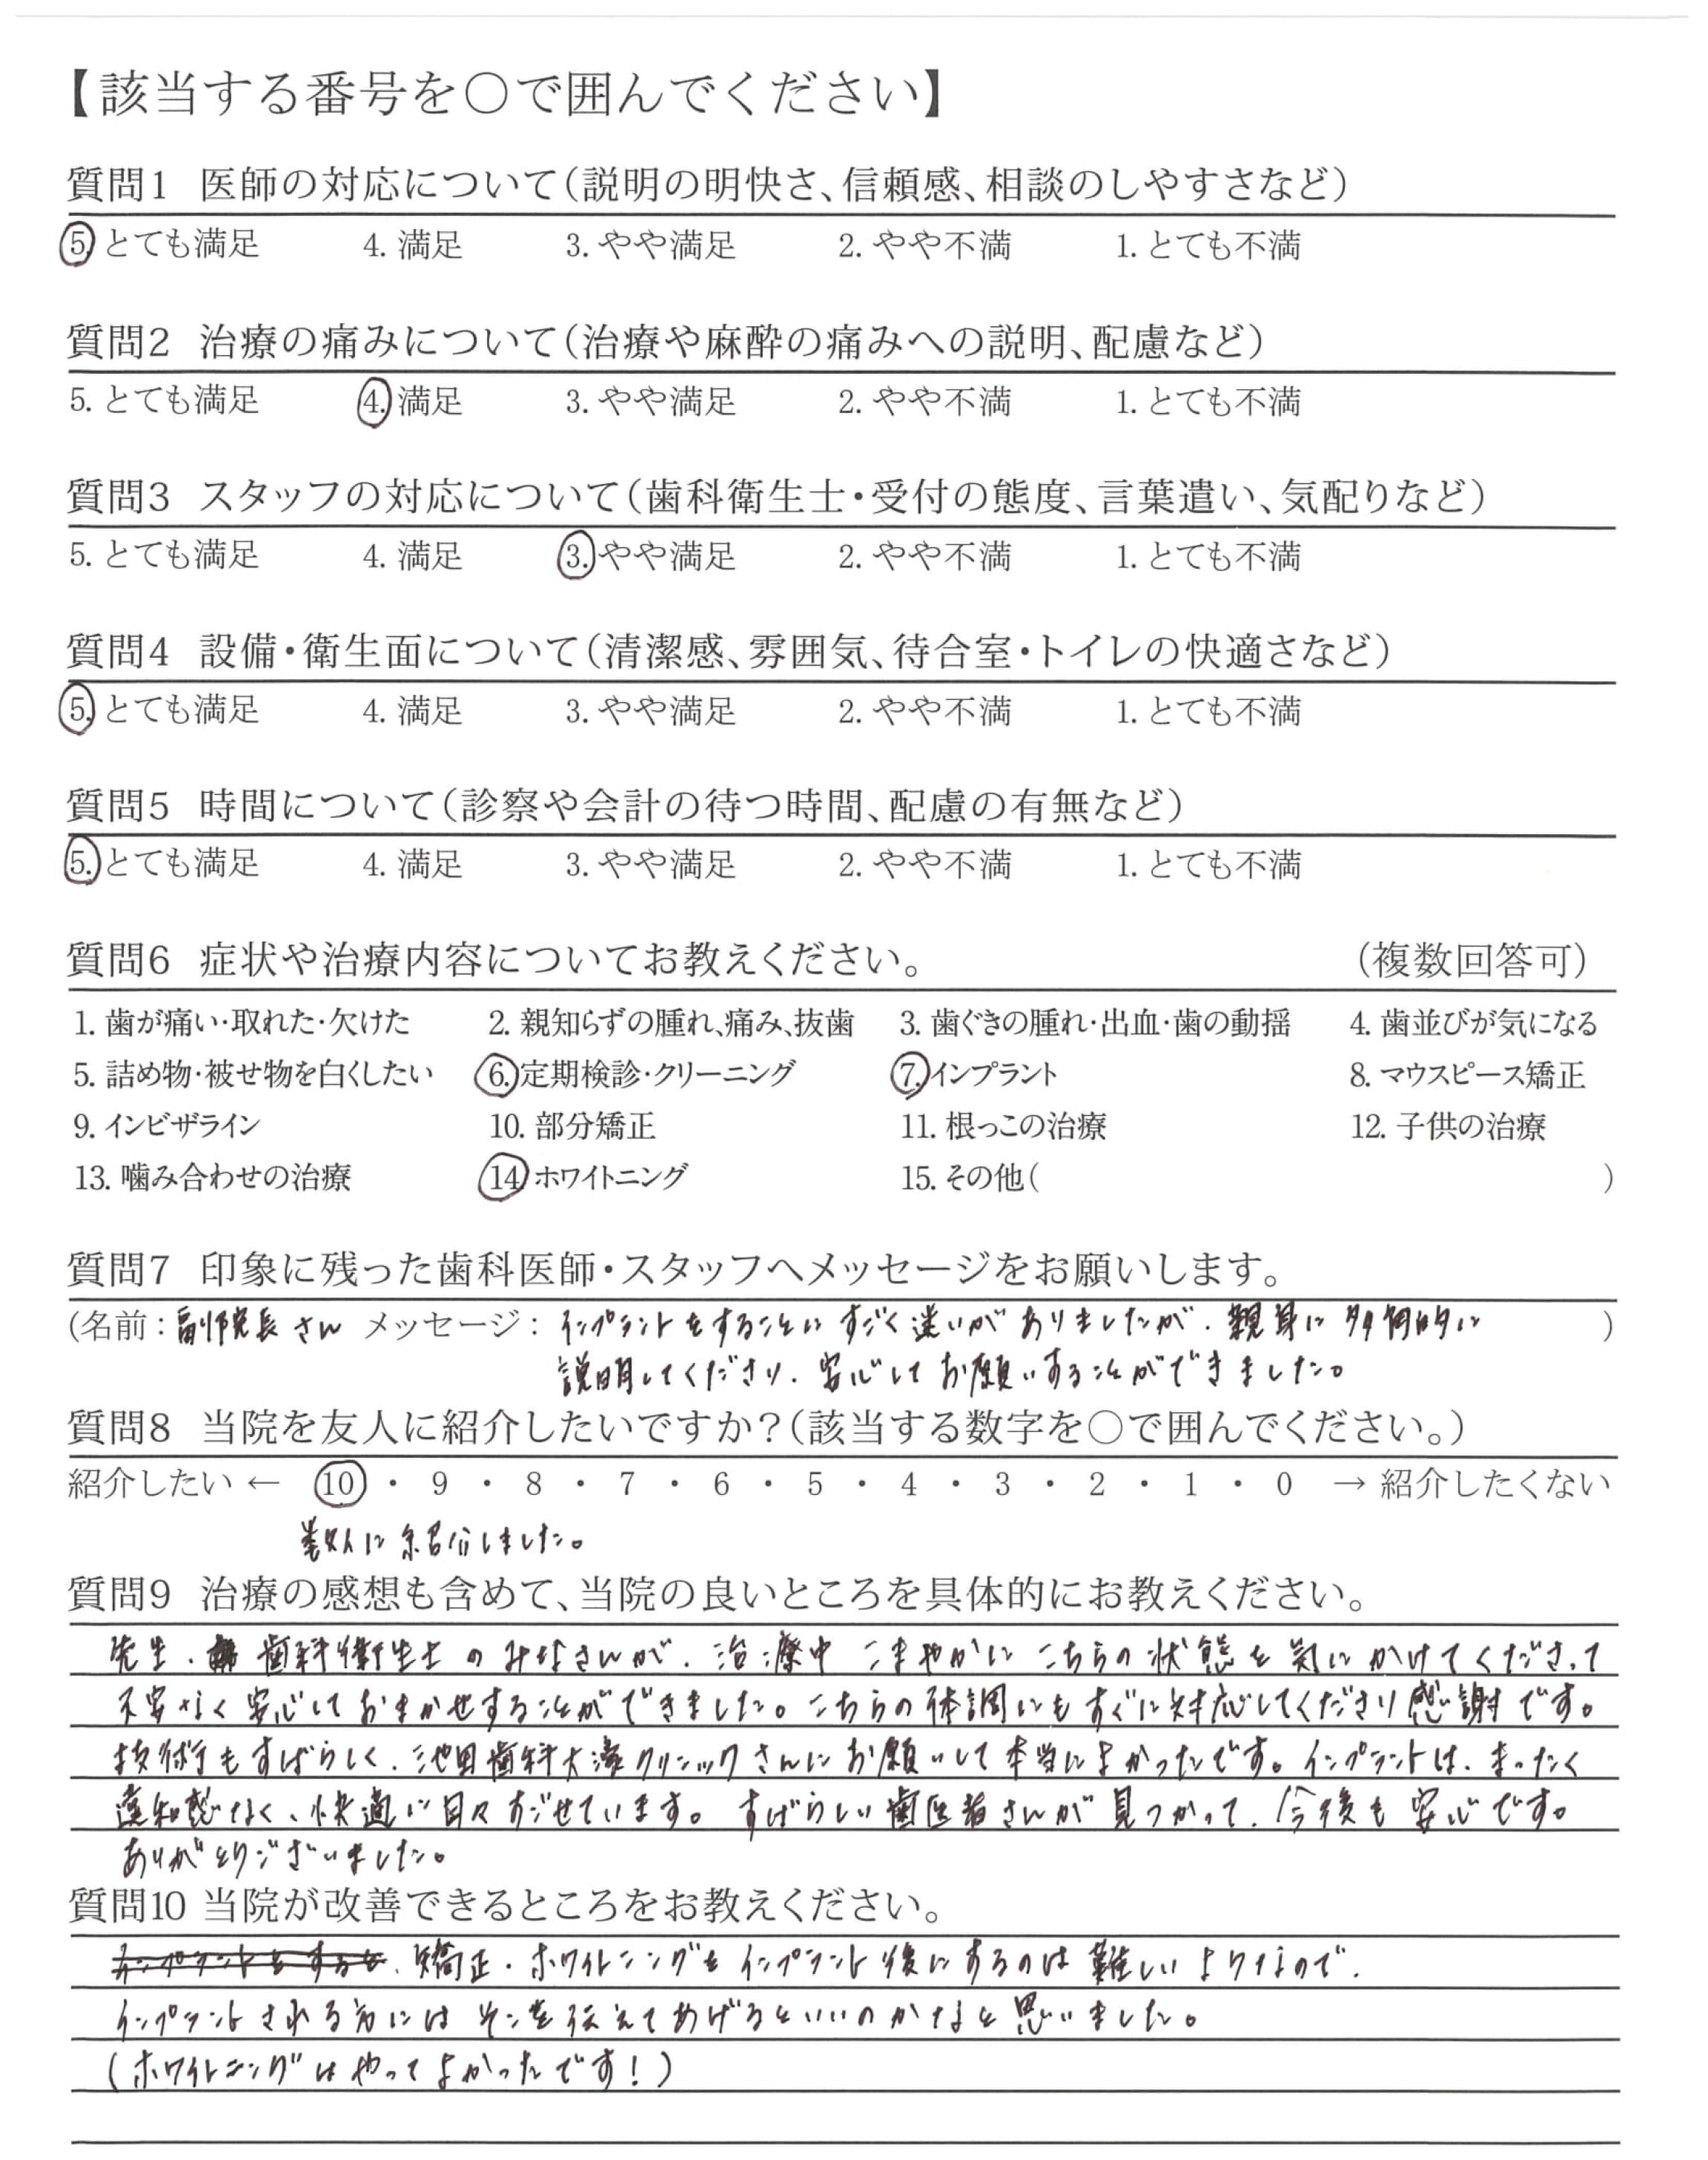 【該当する番号を〇で囲んでください】
質問1 医師の対応について（説明の明快さ、信頼感、相談のしやすさなど）
5. とても満足 4. 満足 3. やや満足 2. やや不満 1. とても不満
質問2 治療の痛みについて（治療や麻酔の痛みへの説明、配慮など）
5. とても満足 4. 満足 3. やや満足 2. やや不満 1. とても不満
質問3 スタッフの対応について（歯科衛生士・受付の態度、言葉遣い、気配りなど）
5. とても満足 4. 満足 3. やや満足 2. やや不満 1. とても不満
質問4 設備・衛生面について（清潔感、雰囲気、待合室・トイレの快適さなど）
5. とても満足 4. 満足 3. やや満足 2. やや不満 1. とても不満
質問5 時間について（診察や会計の待つ時間、配慮の有無など）
5. とても満足 4. 満足 3. やや満足 2. やや不満 1. とても不満
質問6 症状や治療内容についてお教えください。 （複数回答可）
1. 歯が痛い・取れた・欠けた 2. 親知らずの腫れ、痛み、抜歯 3. 歯ぐきの腫れ・出血・歯の動揺 4. 歯並びが気になる
5. 詰め物・被せ物を白くしたい 6. 定期検診・クリーニング 7. インプラント 8. マウスピース矯正
9. インビザライン 10. 部分矯正 11. 根っこの治療 12. 子供の治療
13. 噛み合わせの治療 14. ホワイトニング 15. その他（ ）
質問7 印象に残った歯科医師・スタッフへメッセージをお願いします。
（名前：副院長さん メッセージ：インプラントをすることにすごく迷いがありましたが、親身に多角的に ）
説明してくださり、安心してお願いすることができました。
質問8 当院を友人に紹介したいですか？（該当する数字を〇で囲んでください。）
紹介したい ← 10 ・ 9 ・ 8 ・ 7 ・ 6 ・ 5 ・ 4 ・ 3 ・ 2 ・ 1 ・ 0 → 紹介したくない
数人に紹介しました。
質問9 治療の感想も含めて、当院の良いところを具体的にお教えください。
先生、歯科衛生士のみなさんが、治療中こまやかにこちらの状態を気にかけてくださって
不安なく安心しておまかせすることができました。こちらの体調にもすぐに対応してくださり感謝です。
技術もすばらしく、池田歯科大濠クリニックさんにお願いして本当によかったです。インプラントは、まったく
違和感なく、快適に日々すごせています。すばらしい歯医者さんが見つかって、今後も安心です。
ありがとうございました。
質問10 当院が改善できるところをお教えください。
インプラントをすると、矯正・ホワイトニングをインプラント後にするのは難しいようなので、
インプラントされる方にはそこを伝えてあげるといいのかなと思いました。
（ホワイトニングはやってよかったです！）